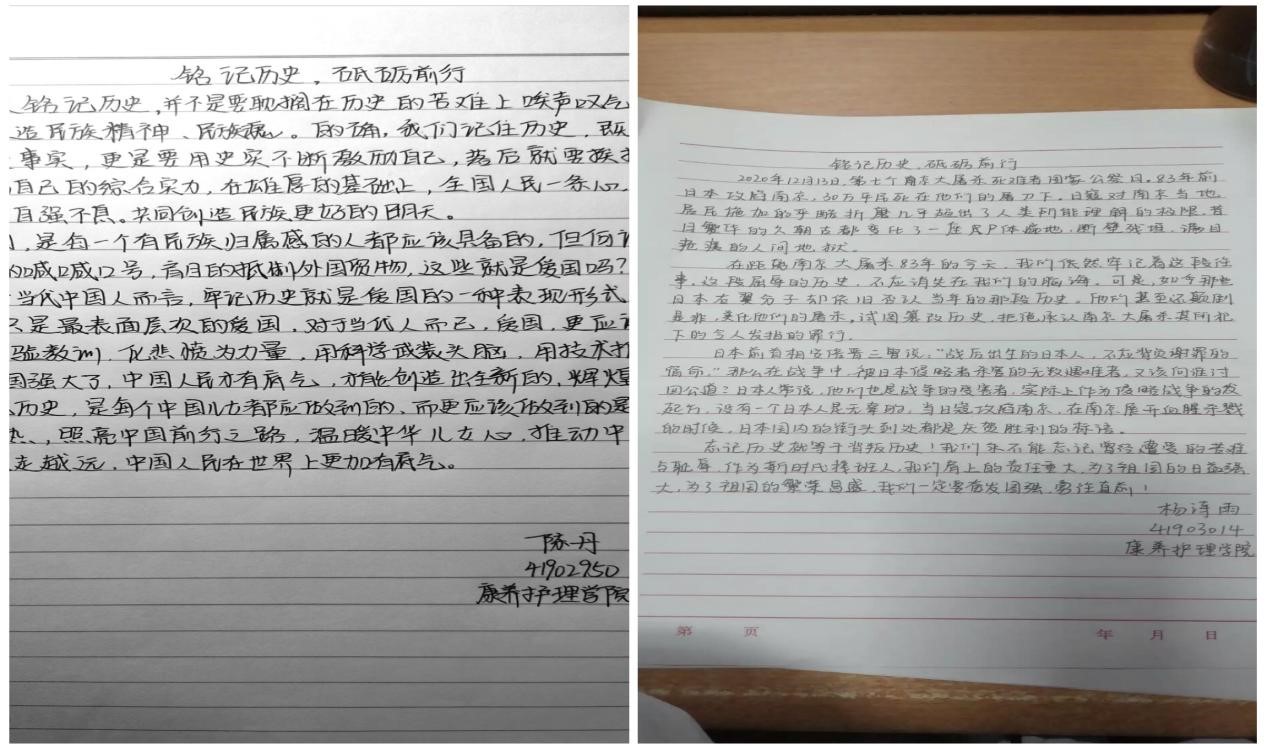 铭记历史，砥砺前行
铭记历史，并不是要耽搁在历史的苦难上唉声叹气
造民族精神、民族魂。的确，我们记住历史，既
事实，更是要用史实不断激励自己，落后就要挨打
自己的综合实力，在雄厚的基础上，全国人民一条心
自强不息。共同创造民族更好的明天。
，是每一个有民族归属感的人都应该具备的，但何谓
的喊喊口号，盲目的抵制外国货物，这些就是爱国吗？
当代中国人而言，牢记历史就是爱国的一种表现形式
只是最表面层次的爱国，对于当代人而已，爱国，更应该
验教训，化悲愤为力量，用科学武装头脑，用技术打
国强大了，中国人民亦有底气，亦能创造出全新的，辉煌
历史，是每个中国儿女都应做到的，而更应该做到的是
热、照亮中国前行之路，温暖中华儿女心，推动中
走越远，中国人民在世界上更加有底气。
陈丹
41902950
康养护理学院
铭记历史，砥砺前行
2020年12月13日，第七个南京大屠杀死难者国家公祭日。83年前
日本攻陷南京，30万平民死在他们的屠刀下。日寇对南京当地
居民施加的手段折磨几乎超出了人类所能理解的极限。昔
日繁华的六朝古都变成了一座尸体遍地，断壁残垣，满目
疮痍的人间地狱。
在距离南京大屠杀83年的今天，我们依然牢记着这段往
事，这段屈辱的历史，不应消失在我们的脑海。可是，如今那些
日本右翼分子却依旧否认当年的那段历史。他们甚至还颠倒
是非，美化他们的屠杀。试图篡改历史，拒绝承认南京大屠杀其所犯
下的令人发指的罪行。
日本前首相安倍晋三曾说：“战后出生的日本人，不应背负谢罪的
宿命。”那么在战争中，被日本侵略者杀害的无数遇难者，又该向谁讨
回公道？日本人常说，他们也是战争的受害者，实际上作为侵略战争的发
起方，没有一个日本人是无辜的。当日寇攻陷南京，在南京展开血腥杀戮
的时候，日本国内的街头到处都是庆贺胜利的标语。
忘记历史就等于背叛历史！我们永不能忘记曾经遭受的苦难
与耻辱，作为新时代接班人，我们肩上的责任重大，为了祖国的日益强
大，为了祖国的繁荣昌盛，我们一定要奋发图强，勇往直前！
杨诗雨
41903014
康养护理学院
第 页 年 月 日